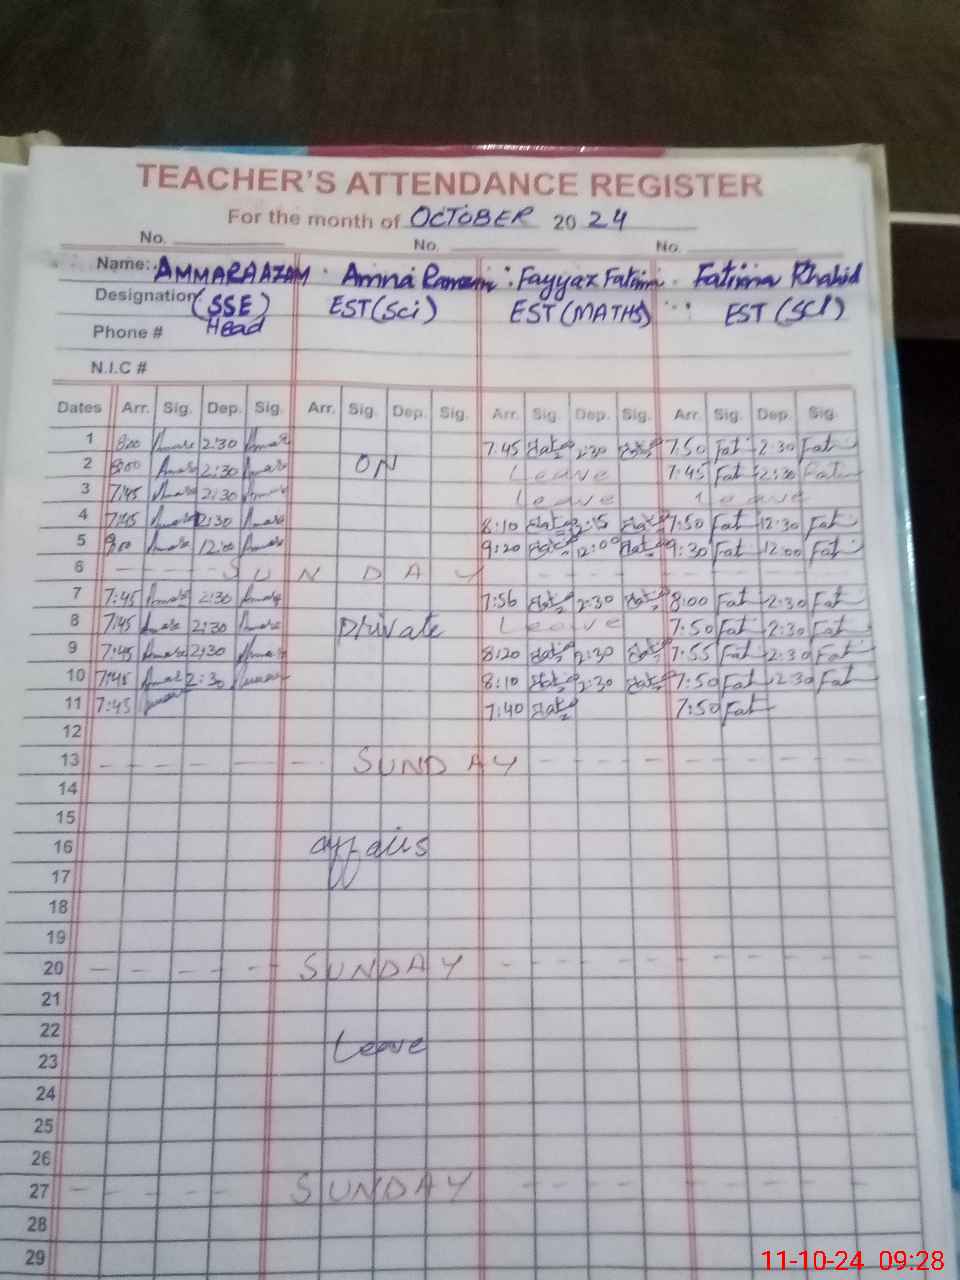 TEACHER'S ATTENDANCE REGISTER
For the month of OCTOBER 2024
No. No. No.
Name: AMMARA AZAM . Amna : Fayyax Fatima . Fatima Khahid
Designation (SSE) EST (Sci) EST (MATHS) EST (SCI)
Head
Phone #
N.I.C #
Dates Arr. Sig. Dep. Sig. Arr. Sig. Dep. Sig. Arr. Sig. Dep. Sig. Arr. Sig. Dep. Sig.
1 8:00 2:30 7:45 2:30 7:50 Fat 2:30 Fat
2 8:00 2:30 ON Leave 7:45 Fat 2:30 Fat
3 7:45 2:30 Leave Leave
4 7:45 2:30 8:10 12:15 7:50 Fat 12:30 Fat
5 9:00 12:00 9:20 12:00 9:30 Fat 12:00 Fat
6 SUNDAY
7 7:45 2:30 7:56 2:30 8:00 Fat 2:30 Fat
8 7:45 2:30 Private Leave 7:50 Fat 2:30 Fat
9 7:45 2:30 8:20 2:30 7:55 Fat 2:30 Fat
10 7:45 2:30 8:10 2:30 7:50 Fat 2:30 Fat
11 7:45 7:40 7:50 Fat
12
13 SUNDAY
14
15
16 affairs
17
18
19
20 SUNDAY
21
22
23 Leave
24
25
26
27 SUNDAY
28
29
11-10-24 09:28